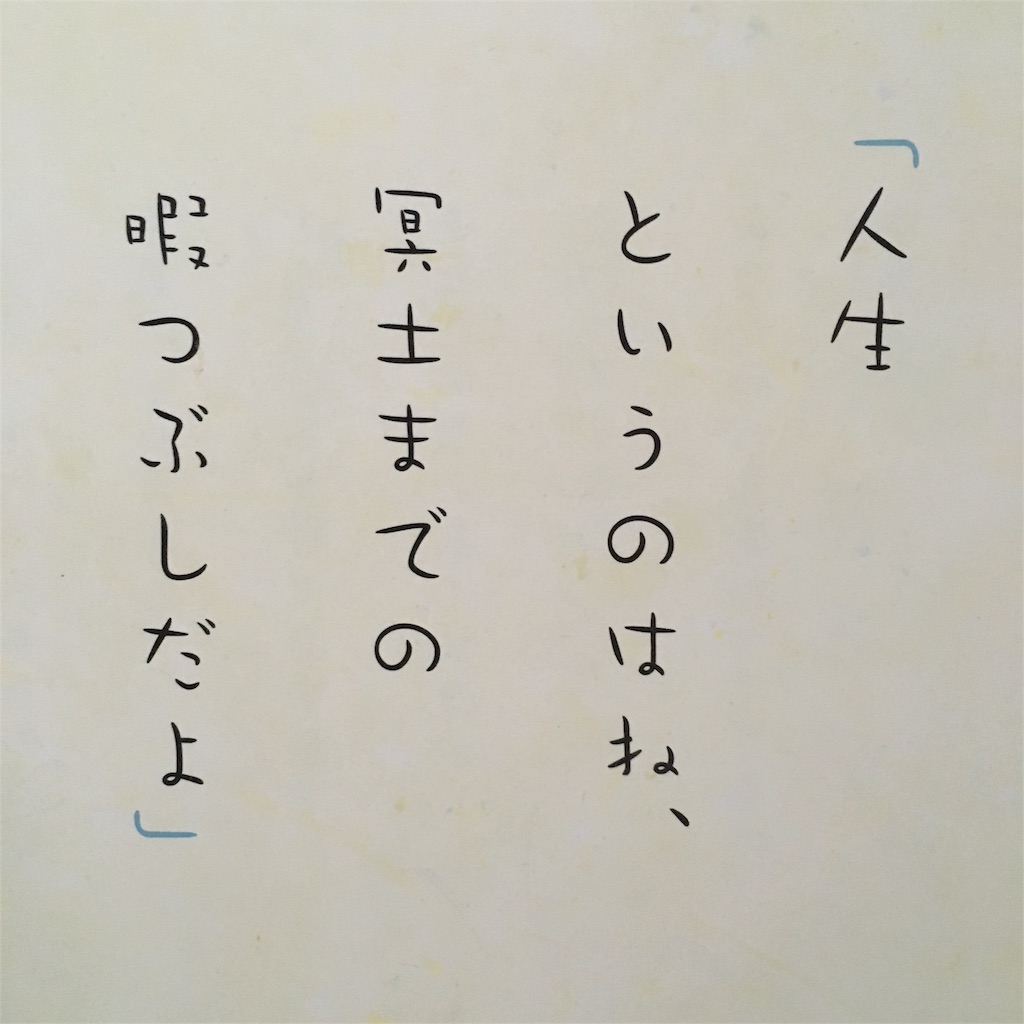 「人生
というのはね、
冥土までの
暇つぶしだよ」